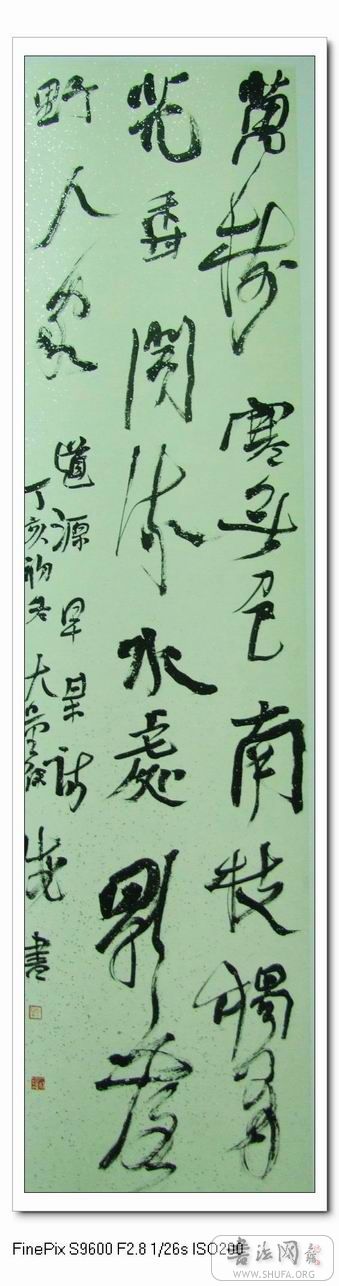 萬樹寒無色南枝獨有
花香聞流水處影落
野人家
道源早某詩
丁亥初冬大 書
FinePix S9600 F2.8 1/26s ISO200
书法网
WWW.SHUFA.ORG